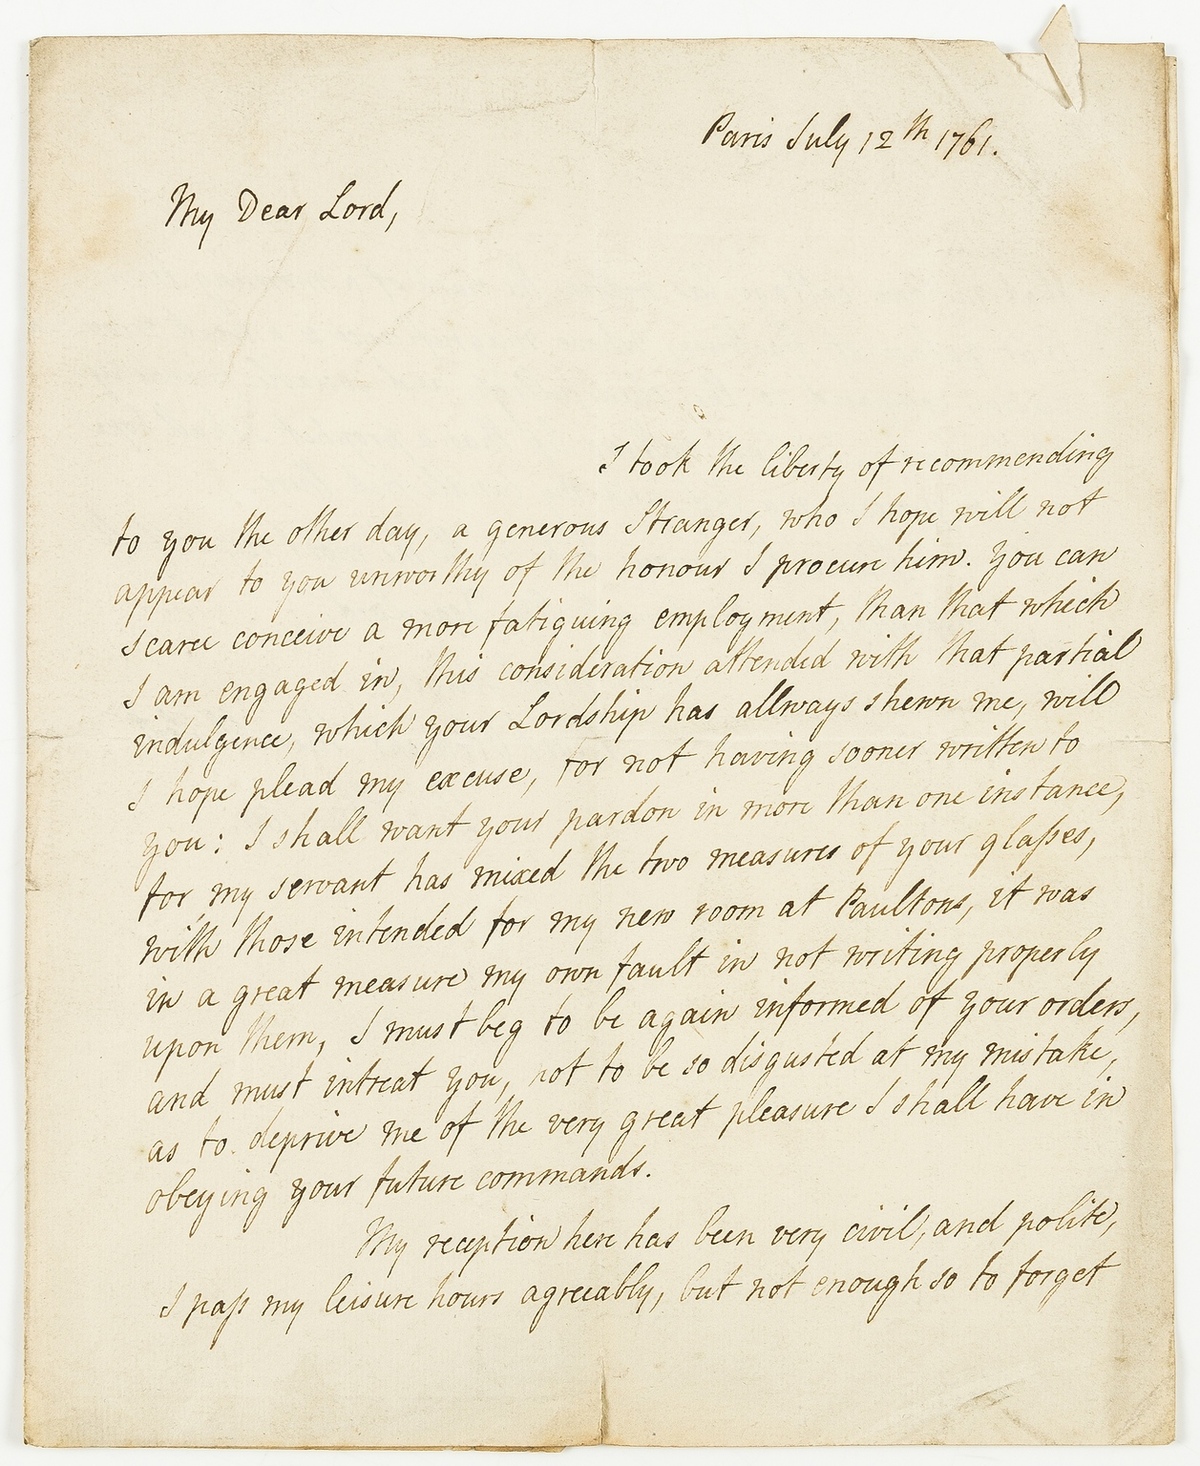 Paris July 12th 1761.
My Dear Lord,
I took the liberty of recommending
to you the other day, a generous Stranger, who I hope will not
appear to you unworthy of the honour I procure him. You can
scarce conceive a more fatiguing employment, than that which
I am engaged in, this consideration attended with that partial
indulgence, which your Lordship has allways shewn me, will
I hope plead my excuse, for not having sooner written to
you: I shall want your pardon in more than one instance,
for my servant has mixed the two measures of your glaſses,
with those intended for my new room at Paultons, it was
in a great measure my own fault in not writing properly
upon them, I must beg to be again informed of your orders,
and must intreat you, not to be so disgusted at my mistake,
as to deprive me of the very great pleasure I shall have in
obeying your future commands.
My reception here has been very civil, and polite,
I paſs my leisure hours agreeably, but not enough so to forget